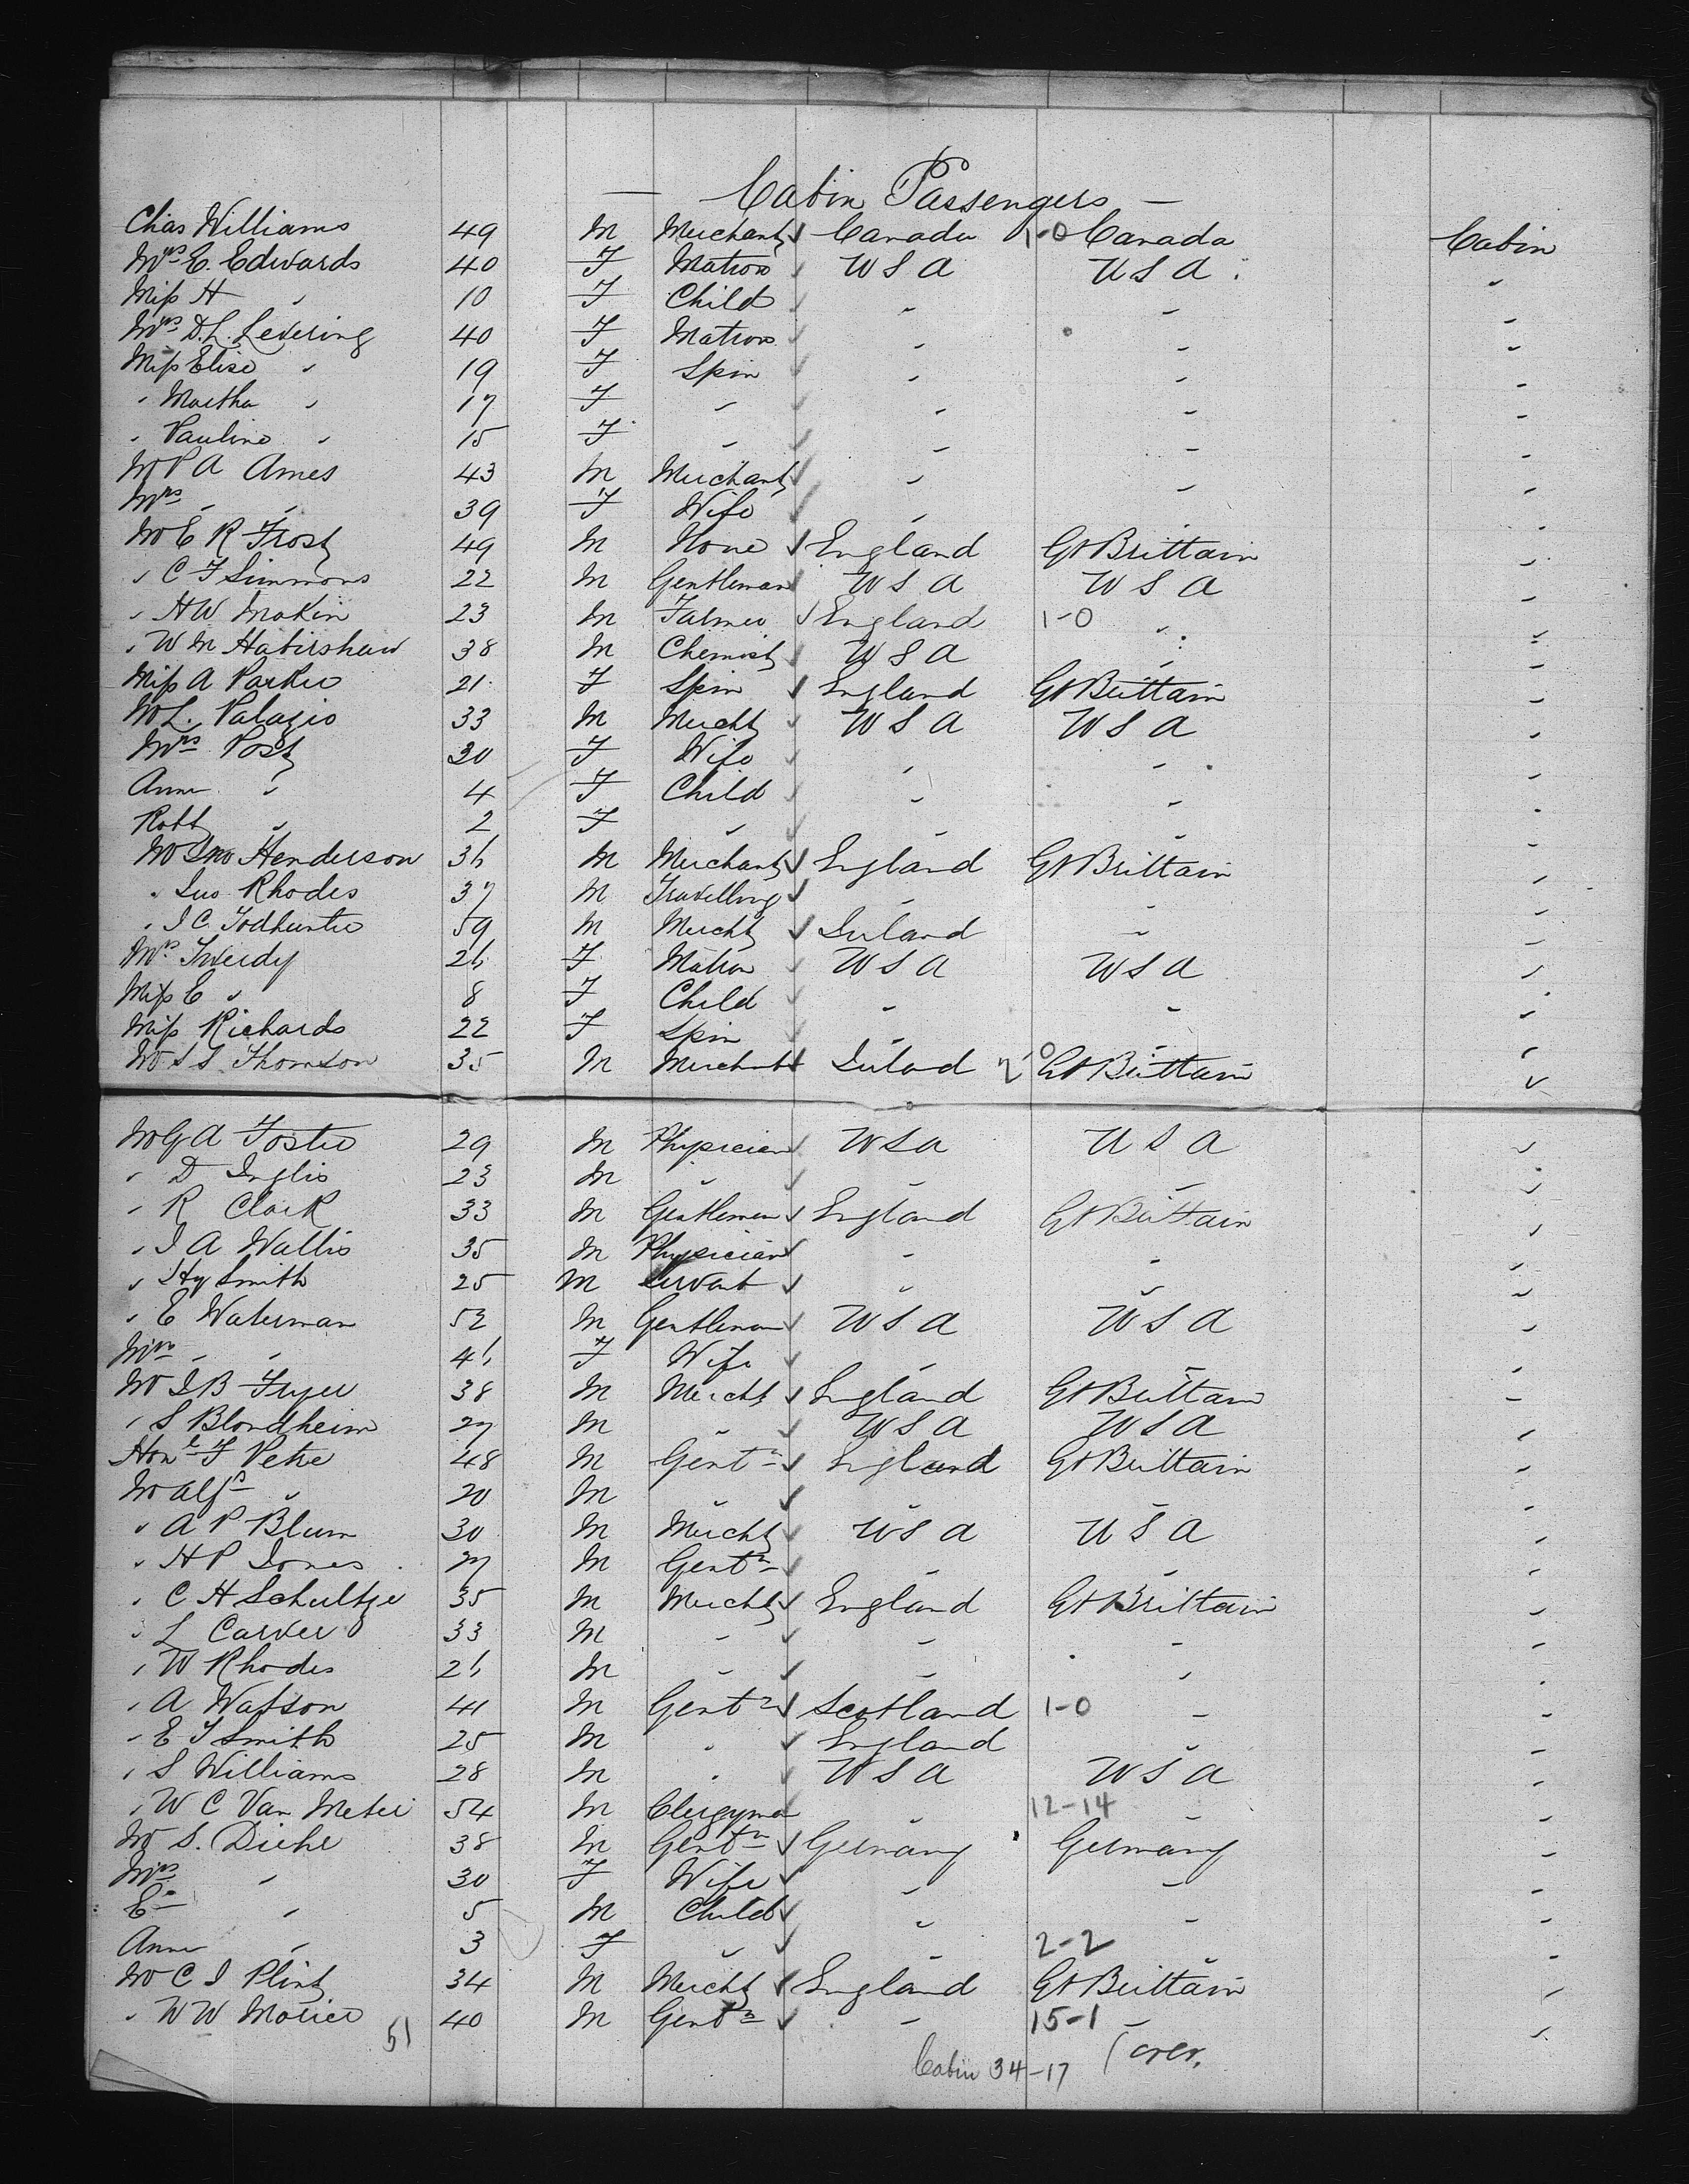 — Cabin Passengers —
Chas Williams 49 M Merchant ✓ Canada 1-0 Canada Cabin
Mrs E. Edwards 40 F Matron ✓ U S A U S A "
Miss H " 10 F Child ✓ " " "
Mrs D.L. Levering 40 F Matron " " "
Miss Elise " 19 F Spin ✓ " " "
" Martha " 17 F " ✓ " " "
" Pauline " 15 F " ✓ " " "
Mr P A Ames 43 M Merchant ✓ " " "
Mrs " " 39 F Wife ✓ " " "
Mr E R Frost 49 M None ✓ England Gt Brittain "
" C F Simmons 22 M Gentleman ✓ U S A U S A "
" H W Makin 23 M Farmer ✓ England 1-0 " "
" W M Habirshaw 38 M Chemist ✓ U S A " "
Miss A Parker 21 F Spin ✓ England Gt Brittain "
Mr L. Palazio 33 M Mercht ✓ U S A U S A "
Mrs Post 30 F Wife ✓ " " "
Anne " 4 F Child ✓ " " "
Robt " 2 F " ✓ " " "
Mr Jno Henderson 36 M Merchant ✓ England Gt Brittain "
" Rhodes 37 M Travelling ✓ " " "
" J C. Todhunter 59 M Mercht ✓ Ireland " "
Mrs Tweedy 26 F Matron ✓ U S A U S A "
Miss E " 8 F Child ✓ " " "
Miss Richards 22 F Spin ✓ " " "
Mr S S Thomson 35 M Merchant ✓ Ireland Gt Brittain "
Mr G A Foster 29 M Physician ✓ U S A U S A "
" D Inglis 23 M " ✓ " " "
" R Clark 33 M Gentleman ✓ England Gt Brittain "
" J A Wallis 35 M Physician ✓ " " "
" Hy Smith 25 M Servant ✓ " " "
" E Waterman 52 M Gentleman ✓ U S A U S A "
Mrs " " 46 F Wife ✓ " " "
Mr J B Fryer 38 M Mercht ✓ England Gt Brittain "
" S Blondheim 27 M " ✓ U S A U S A "
Honle F Petre 48 M Gentn ✓ England Gt Brittain "
Mr Alfd " 20 M " ✓ " " "
" A P Blum 30 M Mercht ✓ U S A U S A "
" H P Jones 27 M Gentn " " "
" C H Schultze 35 M Mercht ✓ England Gt Brittain "
" L Carver 33 M " ✓ " " "
" W Rhodes 26 M " ✓ " " "
" A Watson 41 M Gentn ✓ Scotland 1-0 " "
" E J Smith 25 M " ✓ England " "
" S Williams 28 M " ✓ U S A U S A "
" W C Van Meter 54 M Clergyman " 12-14 " "
Mr S. Diehl 38 M Gentn ✓ Germany Germany "
Mrs " 30 F Wife ✓ " " "
" 5 M Child ✓ " " "
Anne " 3 F " ✓ " 2-2 " "
Mr C J Plint 34 M Mercht ✓ England Gt Brittain "
" W W Morice 40 M Gentn ✓ " 15-1 " "
51 Cabin 34-17 (over.